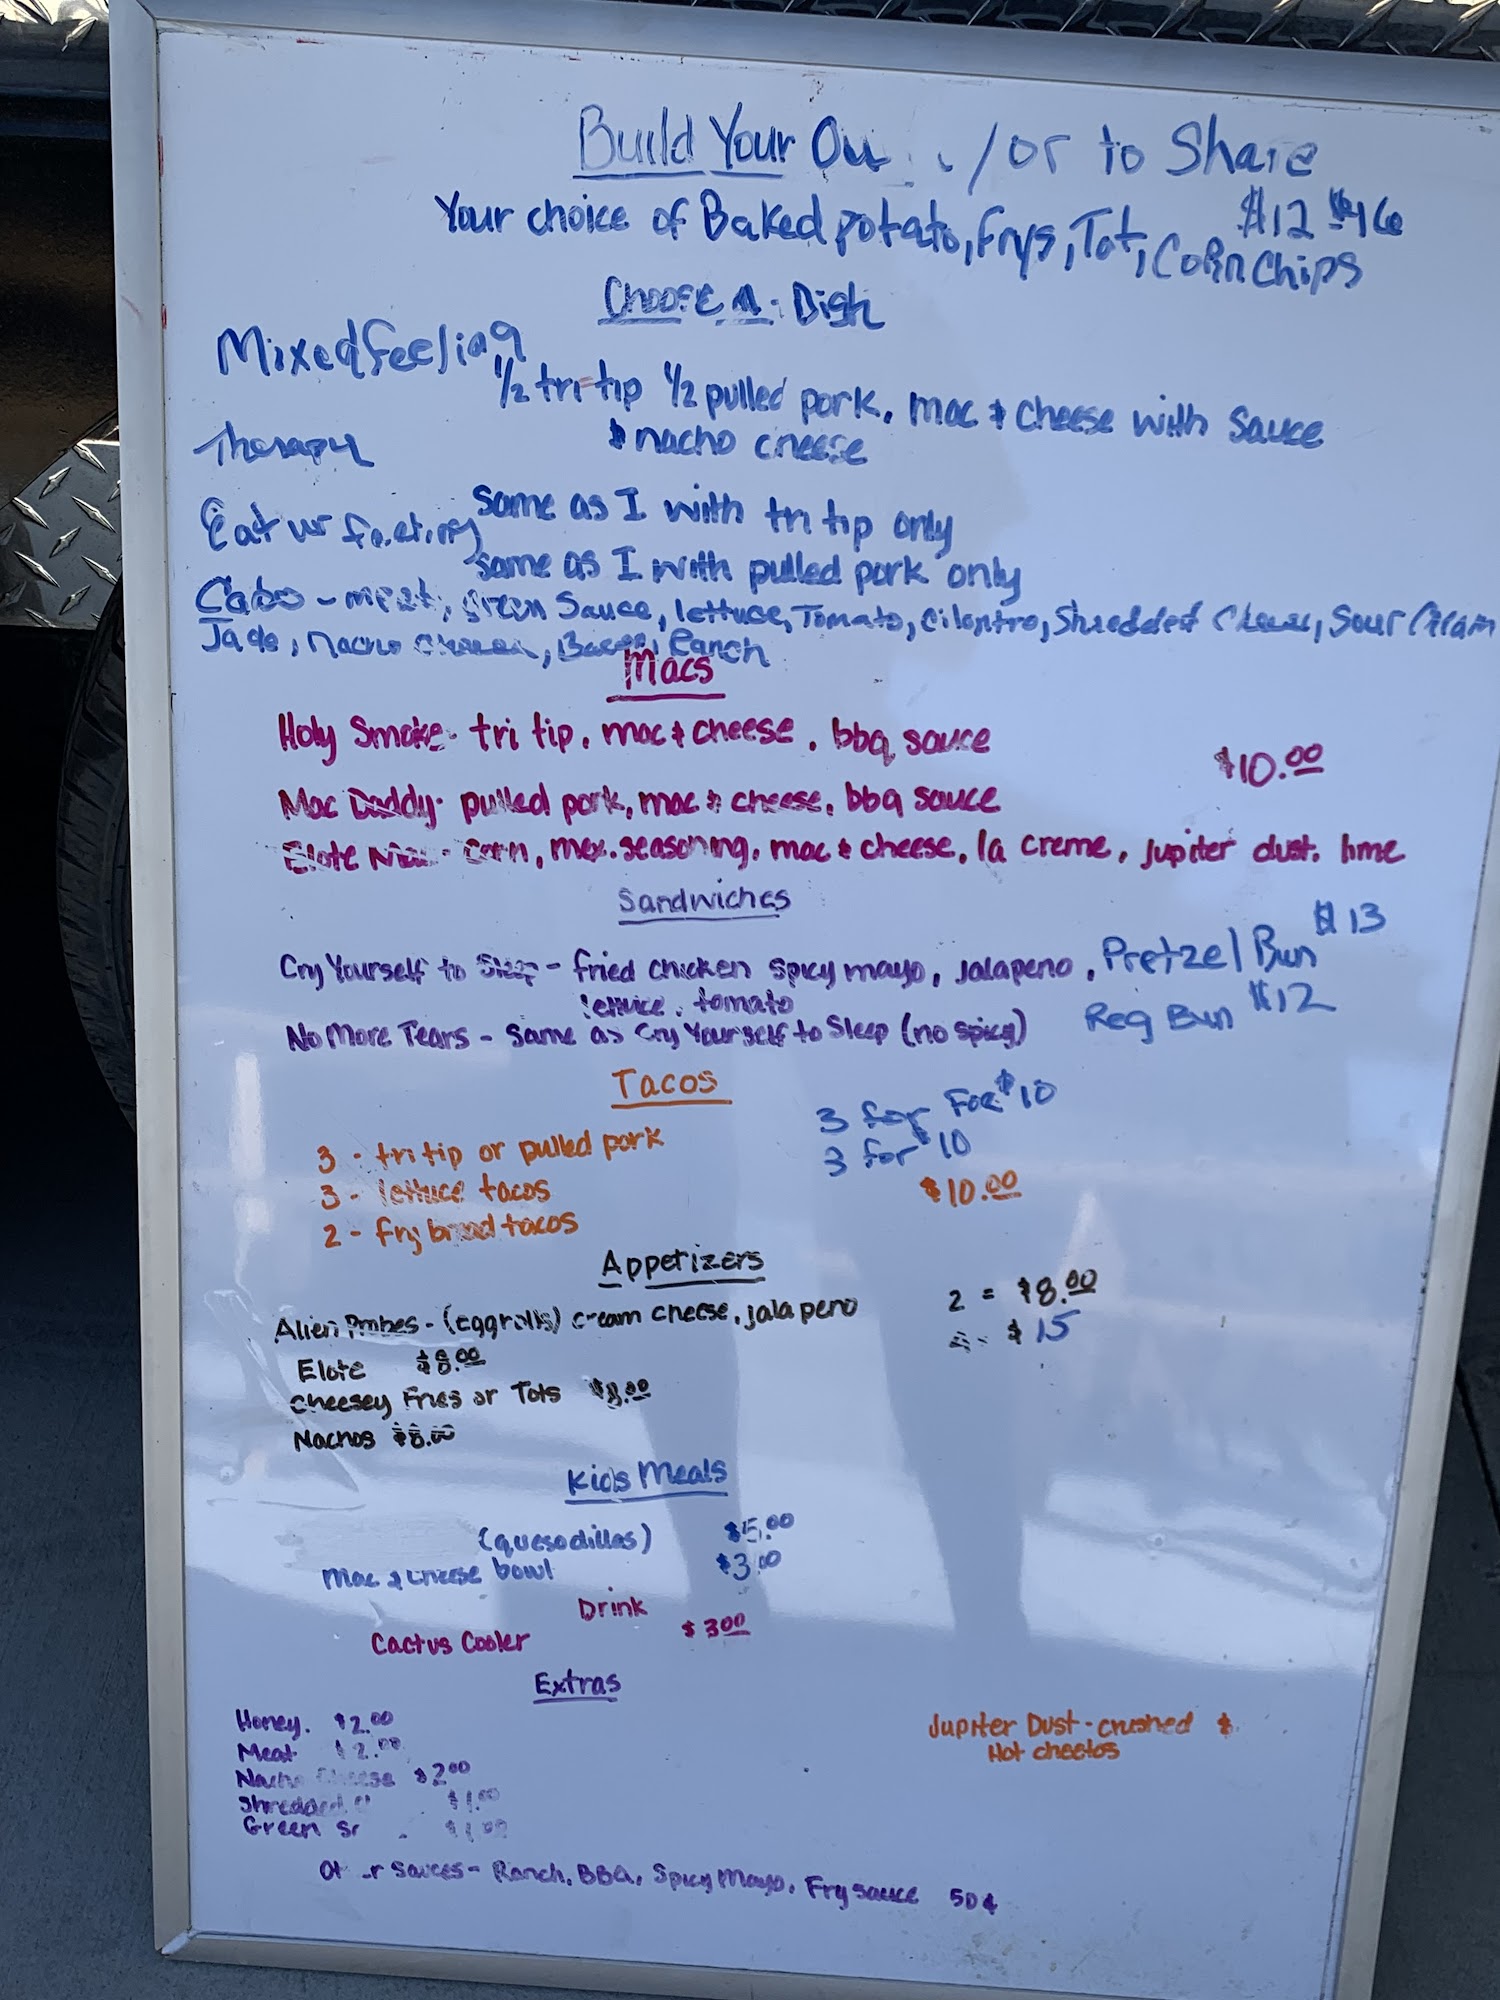 Build Your Ow / or to Share
$12 $16
Your choice of Baked potato, Frys, Tot, Corn Chips
Choose A. Dish
Mixed feeling
1/2 tri-tip 1/2 pulled pork, mac & cheese with sauce
& nacho cheese
Therapy
same as I with tri tip only
Eat ur feeling
same as I with pulled pork only
Cabo - meat, green Sauce, lettuce, Tomato, Cilantro, Shredded Cheese, Sour Cream
Jade, nacho cheese, Bacon, Ranch
Macs
Holy Smoke- tri tip, mac & cheese, bbq sauce
$10.00
Mac Daddy- pulled pork, mac & cheese, bbq sauce
Elote Mac- corn, mex. seasoning, mac & cheese, la creme, jupiter dust, lime
Sandwiches
$13
Cry Yourself to Sleep - fried chicken spicy mayo, jalapeno, Pretzel Bun
lettuce, tomato
Reg Bun $12
No More Tears - same as Cry Yourself to Sleep (no spicy)
Tacos
3 for For $10
3 - tri tip or pulled pork
3 for $10
3 - lettuce tacos
$10.00
2 - fry bread tacos
Appetizers
2 = $8.00
Alien Probes - (eggrolls) cream cheese, jalapeno
= $15
Elote $8.00
Cheesey Fries or Tots $8.00
Nachos $8.00
Kids Meals
(quesadillas) $5.00
Mac & cheese bowl $3.00
Drink
Cactus Cooler $3.00
Extras
Honey. $2.00
Jupiter Dust - crushed $
Hot cheetos
Meat $2.00
Nacho Cheese $2.00
Shredded $1.00
Green $1.00
Sauces - Ranch, BBQ, Spicy Mayo, Fry sauce 50¢